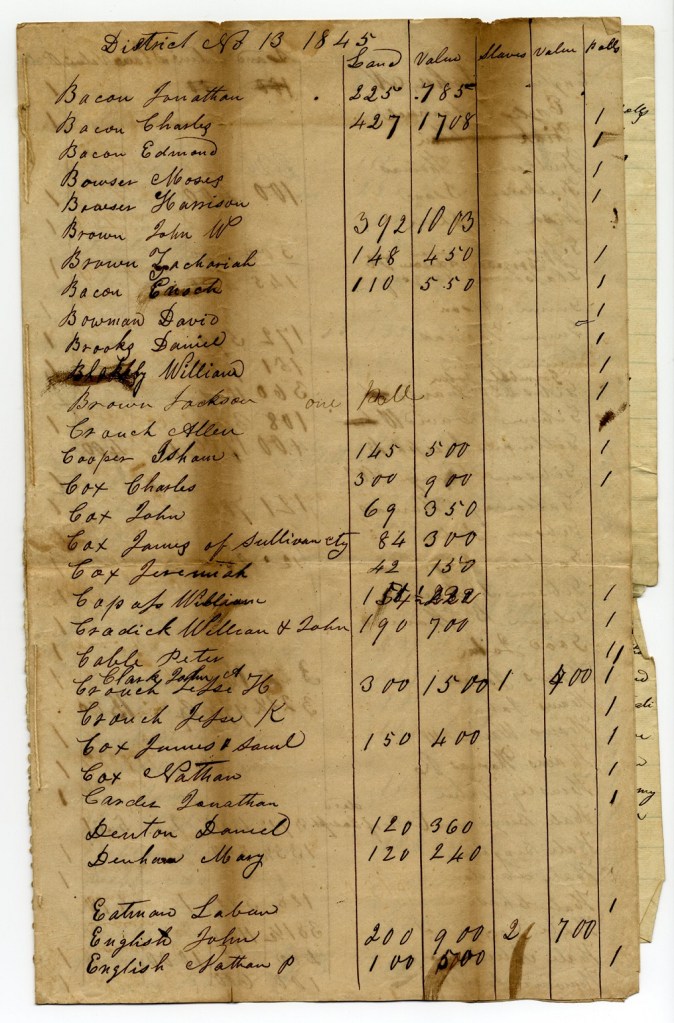 District No 13 1845
Land Value Slaves Value Polls
Bacon Jonathan 225 785
Bacon Charles 427 1708 1
Bacon Edmond 1
Bowser Moses 1
Bowser Harrison 1
Brown John W 392 1003
Brown Zachariah 148 450 1
Bacon Enoch 110 550 1
Bowman David 1
Brooks Daniel 1
William 1
Brown Jackson one Poll 1
Crouch Allen
Cooper Isham 145 500 1
Cox Charles 300 900 1
Cox John 69 350
Cox James of Sullivan cty 84 300
Cox Jeremiah 42 150
William 222
Cradick William & John 190 700 1
Cable Peter 11
Clark A
Crouch Jesse H 300 1500 1 400 1
Crouch Jesse K 1
Cox James & Saml 150 400 1
Cox Nathan 1
Carder Jonathan 1
Denton Daniel 120 360
Denham Mary 120 240
Eatman Laban 1
English John 200 900 2 700
English Nathan P 100 500 1